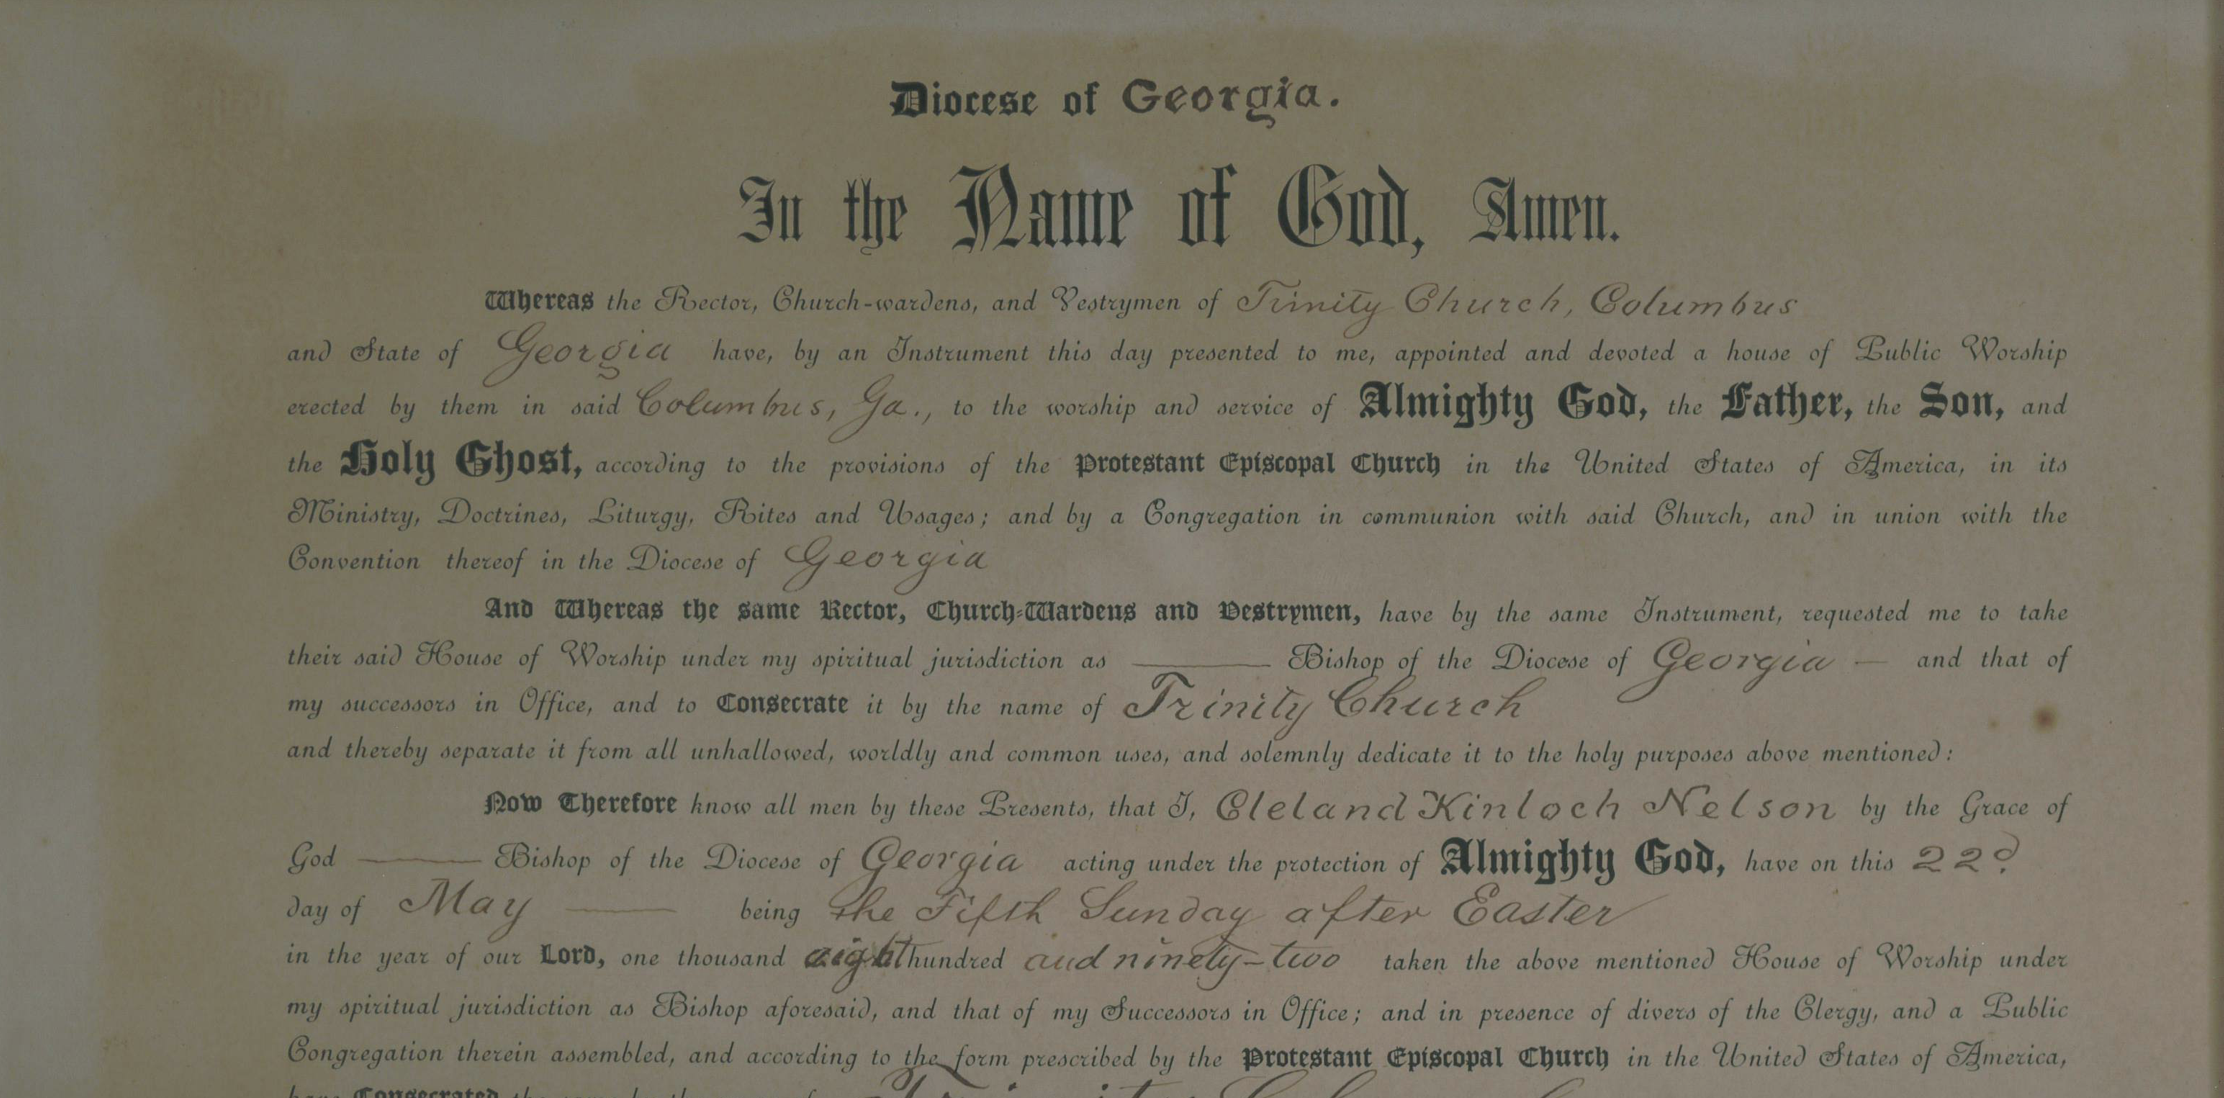 Diocese of Georgia.
In the Name of God, Amen.
Whereas the Rector, Church-wardens, and Vestrymen of Trinity Church, Columbus
and State of Georgia have, by an Instrument this day presented to me, appointed and devoted a house of Public Worship
erected by them in said Columbus, Ga., to the worship and service of Almighty God, the Father, the Son, and
the Holy Ghost, according to the provisions of the Protestant Episcopal Church in the United States of America, in its
Ministry, Doctrines, Liturgy, Rites and Usages; and by a Congregation in communion with said Church, and in union with the
Convention thereof in the Diocese of Georgia
And Whereas the same Rector, Church-Wardens and Vestrymen, have by the same Instrument, requested me to take
their said House of Worship under my spiritual jurisdiction as —— Bishop of the Diocese of Georgia — and that of
my successors in Office, and to Consecrate it by the name of Trinity Church
and thereby separate it from all unhallowed, worldly and common uses, and solemnly dedicate it to the holy purposes above mentioned:
Now Therefore know all men by these Presents, that I, Cleland Kinloch Nelson by the Grace of
God —— Bishop of the Diocese of Georgia acting under the protection of Almighty God, have on this 22d
day of May —— being the Fifth Sunday after Easter
in the year of our Lord, one thousand eight hundred and ninety-two taken the above mentioned House of Worship under
my spiritual jurisdiction as Bishop aforesaid, and that of my Successors in Office; and in presence of divers of the Clergy, and a Public
Congregation therein assembled, and according to the form prescribed by the Protestant Episcopal Church in the United States of America,
have Consecrated